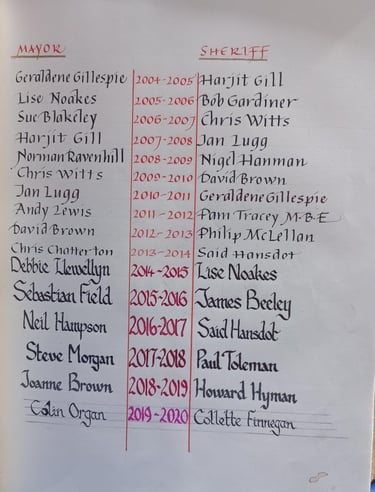 MAYOR SHERIFF
Geraldene Gillespie 2004-2005 Harjit Gill
Lise Noakes 2005-2006 Bob Gardiner
Sue Blakeley 2006-2007 Chris Witts
Harjit Gill 2007-2008 Jan Lugg
Norman Ravenhill 2008-2009 Nigel Hanman
Chris Witts 2009-2010 David Brown
Jan Lugg 2010-2011 Geraldene Gillespie
Andy Lewis 2011-2012 Pam Tracey M.B.E
David Brown 2012-2013 Philip McLellan
Chris Chatterton 2013-2014 Said Hansdot
Debbie Llewellyn 2014-2015 Lise Noakes
Sebastian Field 2015-2016 James Beeley
Neil Hampson 2016-2017 Said Hansdot
Steve Morgan 2017-2018 Paul Toleman
Joanne Brown 2018-2019 Howard Hyman
Colin Organ 2019-2020 Collette Finnegan